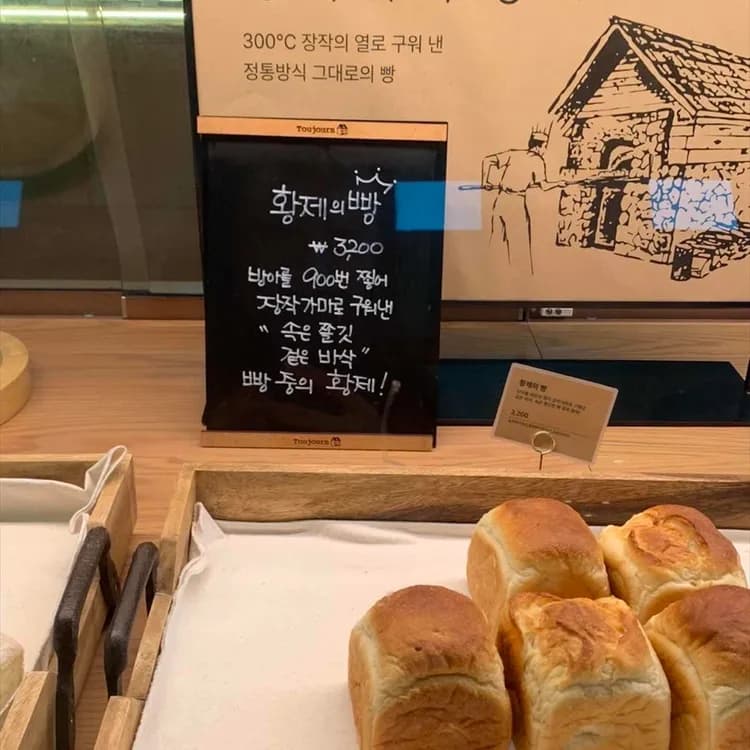 300°C 장작의 열로 구워 낸
정통방식 그대로의 빵
Toujours
황제의 빵
₩ 3,200
방아를 900번 찧어
장작가마로 구워낸
"속은 쫄깃
겉은 바삭"
빵 중의 황제!
Toujours
황제의 빵
3,200